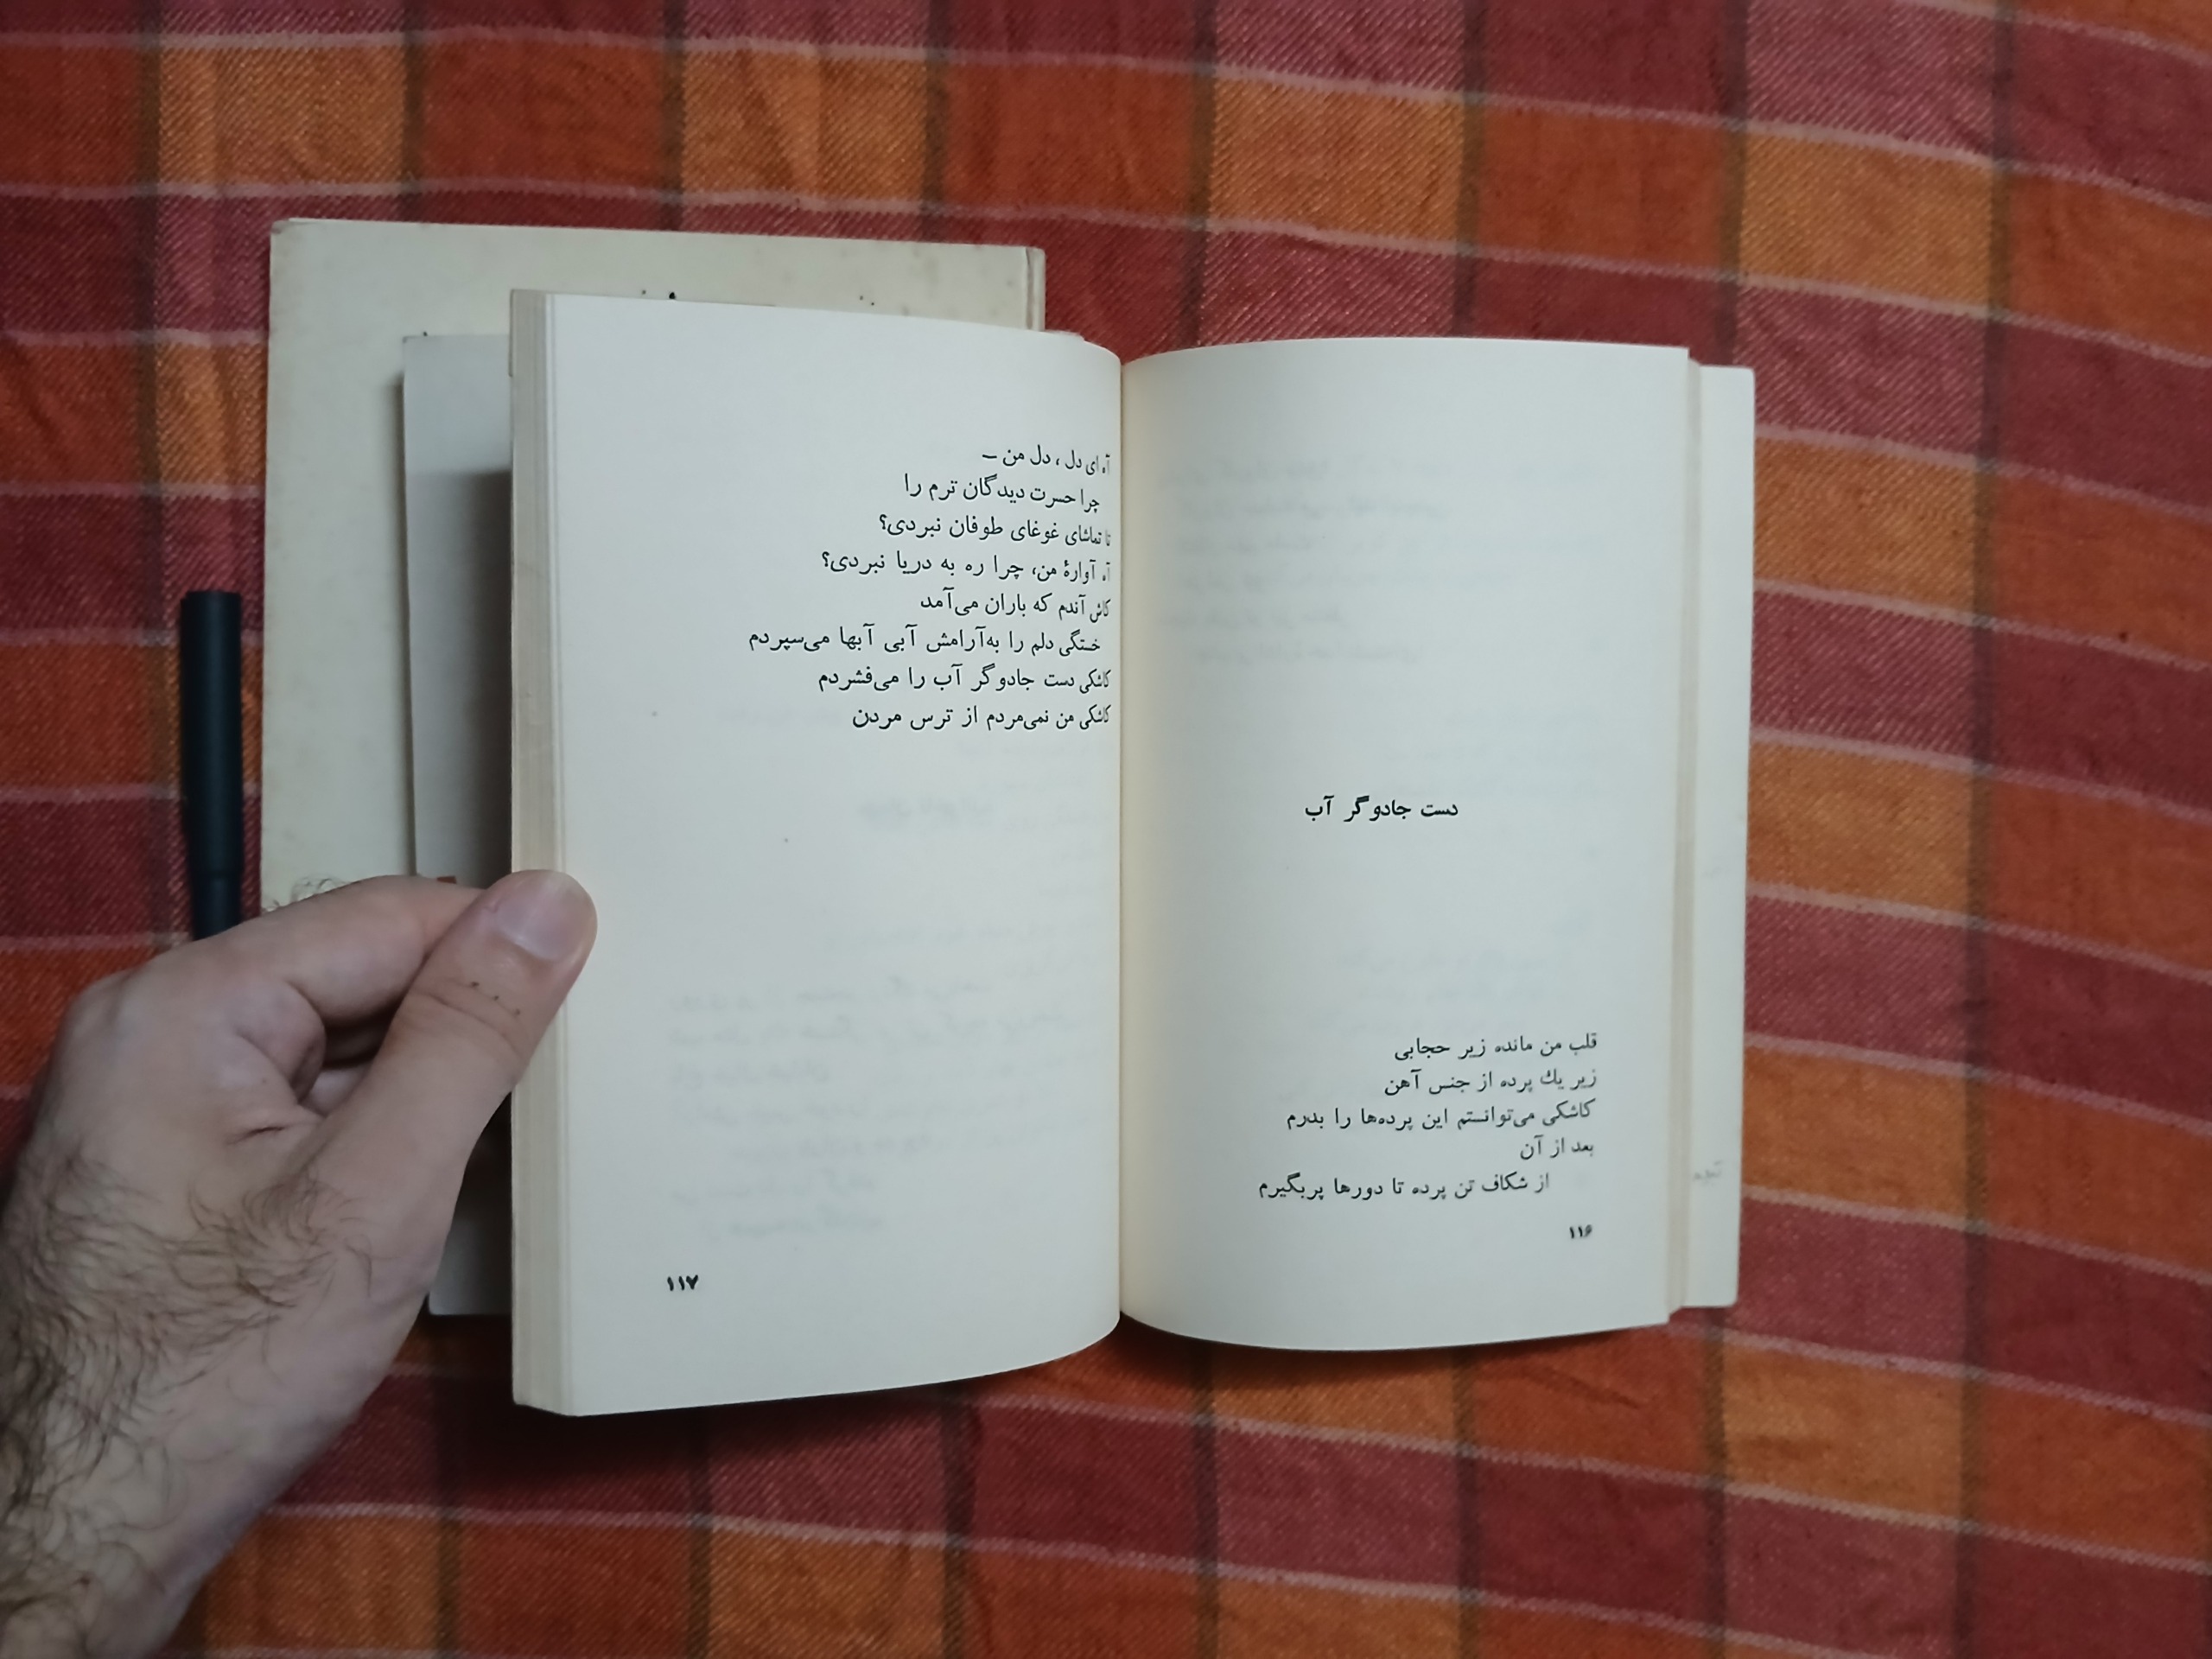 دست جادوگر آب
قلب من مانده زیر حجابی
زیر یك پرده از جنس آهن
کاشکی می‌توانستم این پرده‌ها را بدرم
بعد از آن
از شکاف تن پرده تا دورها پربگیرم
۱۱۶
آه ای دل ، دل من —
چرا حسرت دیدگان ترم را
تا تماشای غوغای طوفان نبردی؟
آه آوارهٔ من، چرا ره به دریا نبردی؟
کاش آندم که باران می‌آمد
خستگی دلم را به‌آرامش آبی آبها می‌سپردم
کاشکی دست جادوگر آب را می‌فشردم
کاشکی من نمی‌مردم از ترس مردن
۱۱۷